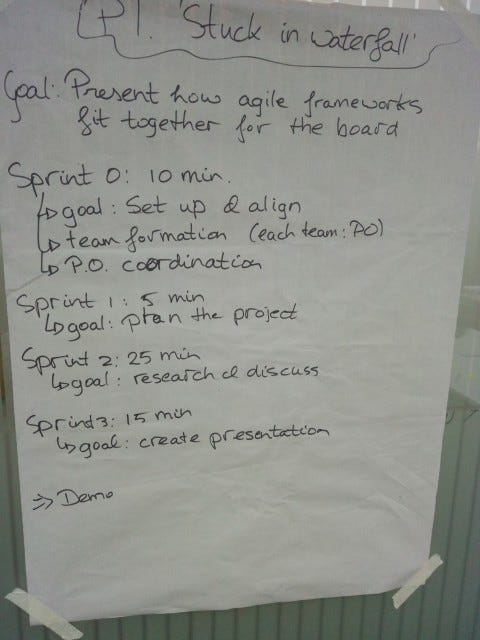 P1. 'Stuck in waterfall'
Goal: Present how agile frameworks
fit together for the board
Sprint 0: 10 min.
↳ goal: Set up & align
↳ team formation (each team: PO)
↳ P.O. coordination
Sprint 1: 5 min
↳ goal: plan the project
Sprint 2: 25 min
↳ goal: research & discuss
Sprint 3: 15 min
↳ goal: create presentation
=> Demo